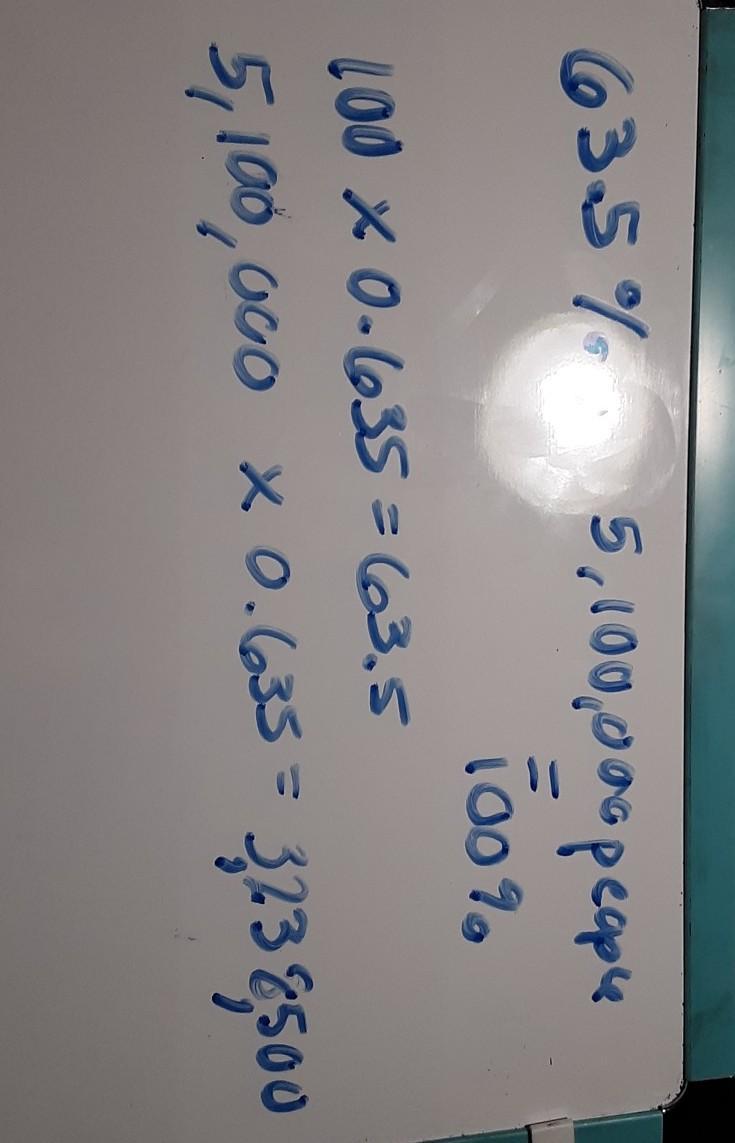 63.5% 5,100,000 people
=
100%
100 x 0.635 = 63.5
5,100,000 x 0.635 = 3,238,500